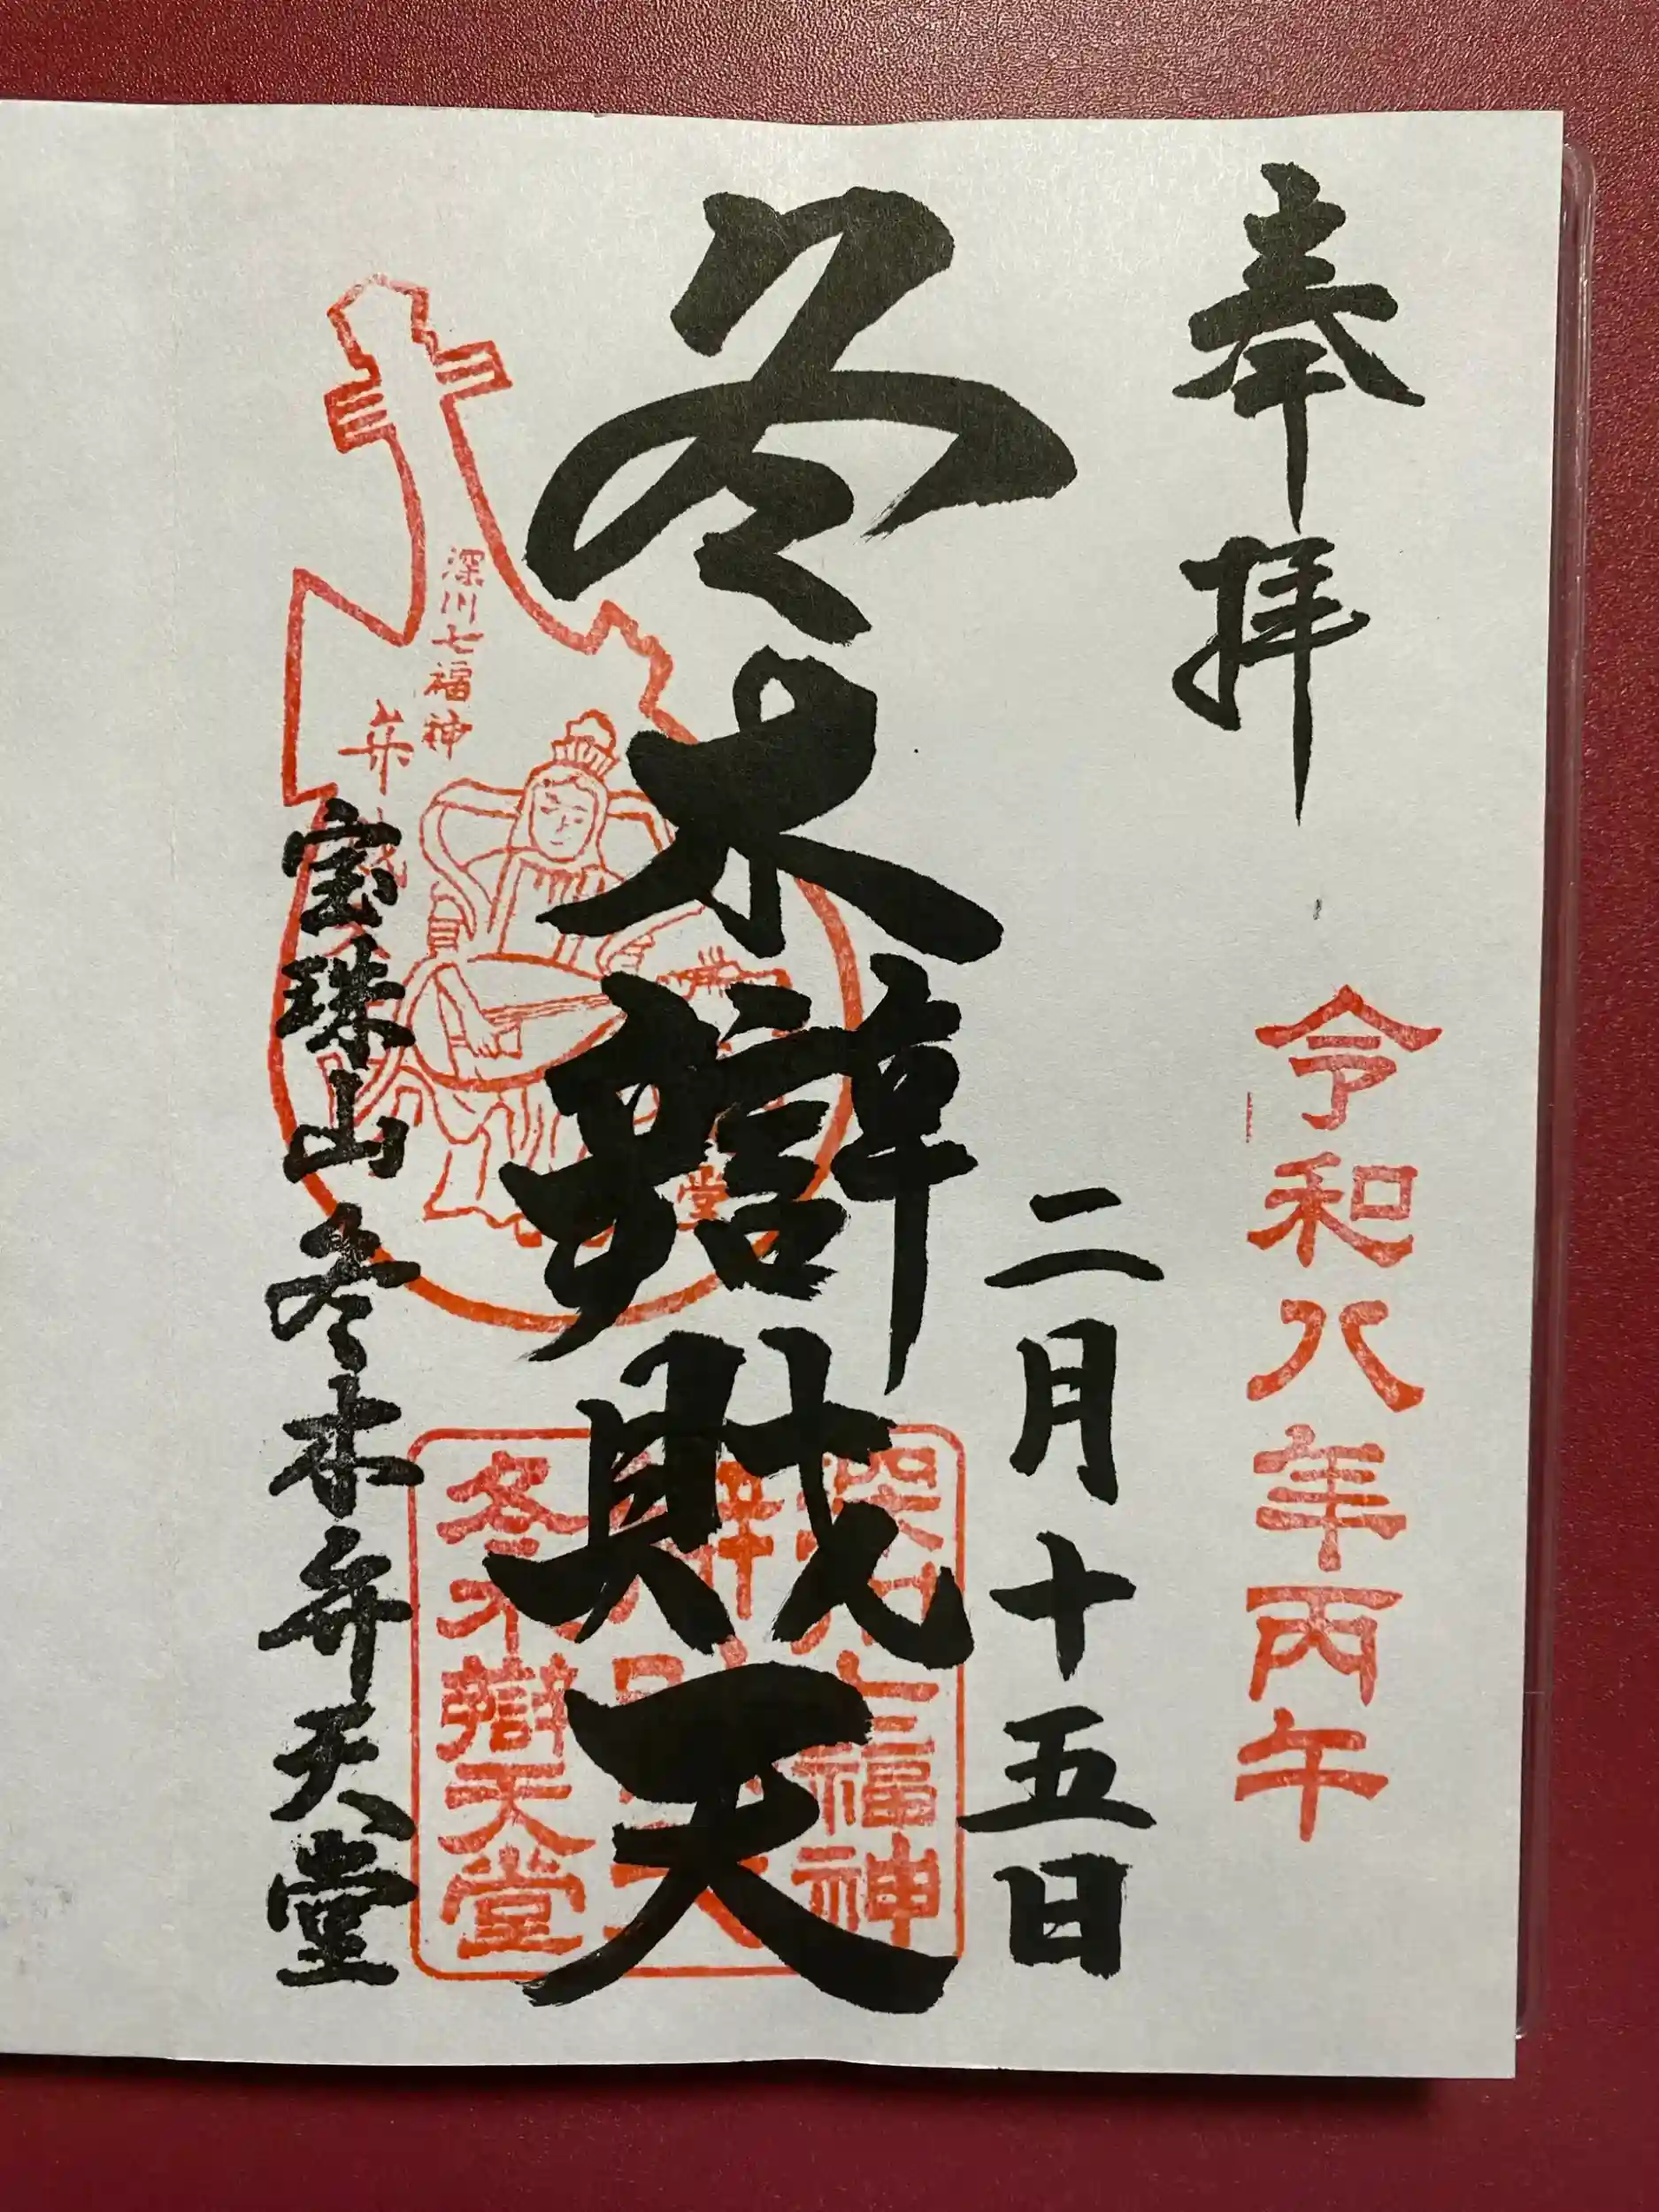 奉拝
令和八年丙午
二月十五日
冬木辯財天
深川七福神
深川七福神
冬木辯天堂
宝珠山冬木弁天堂